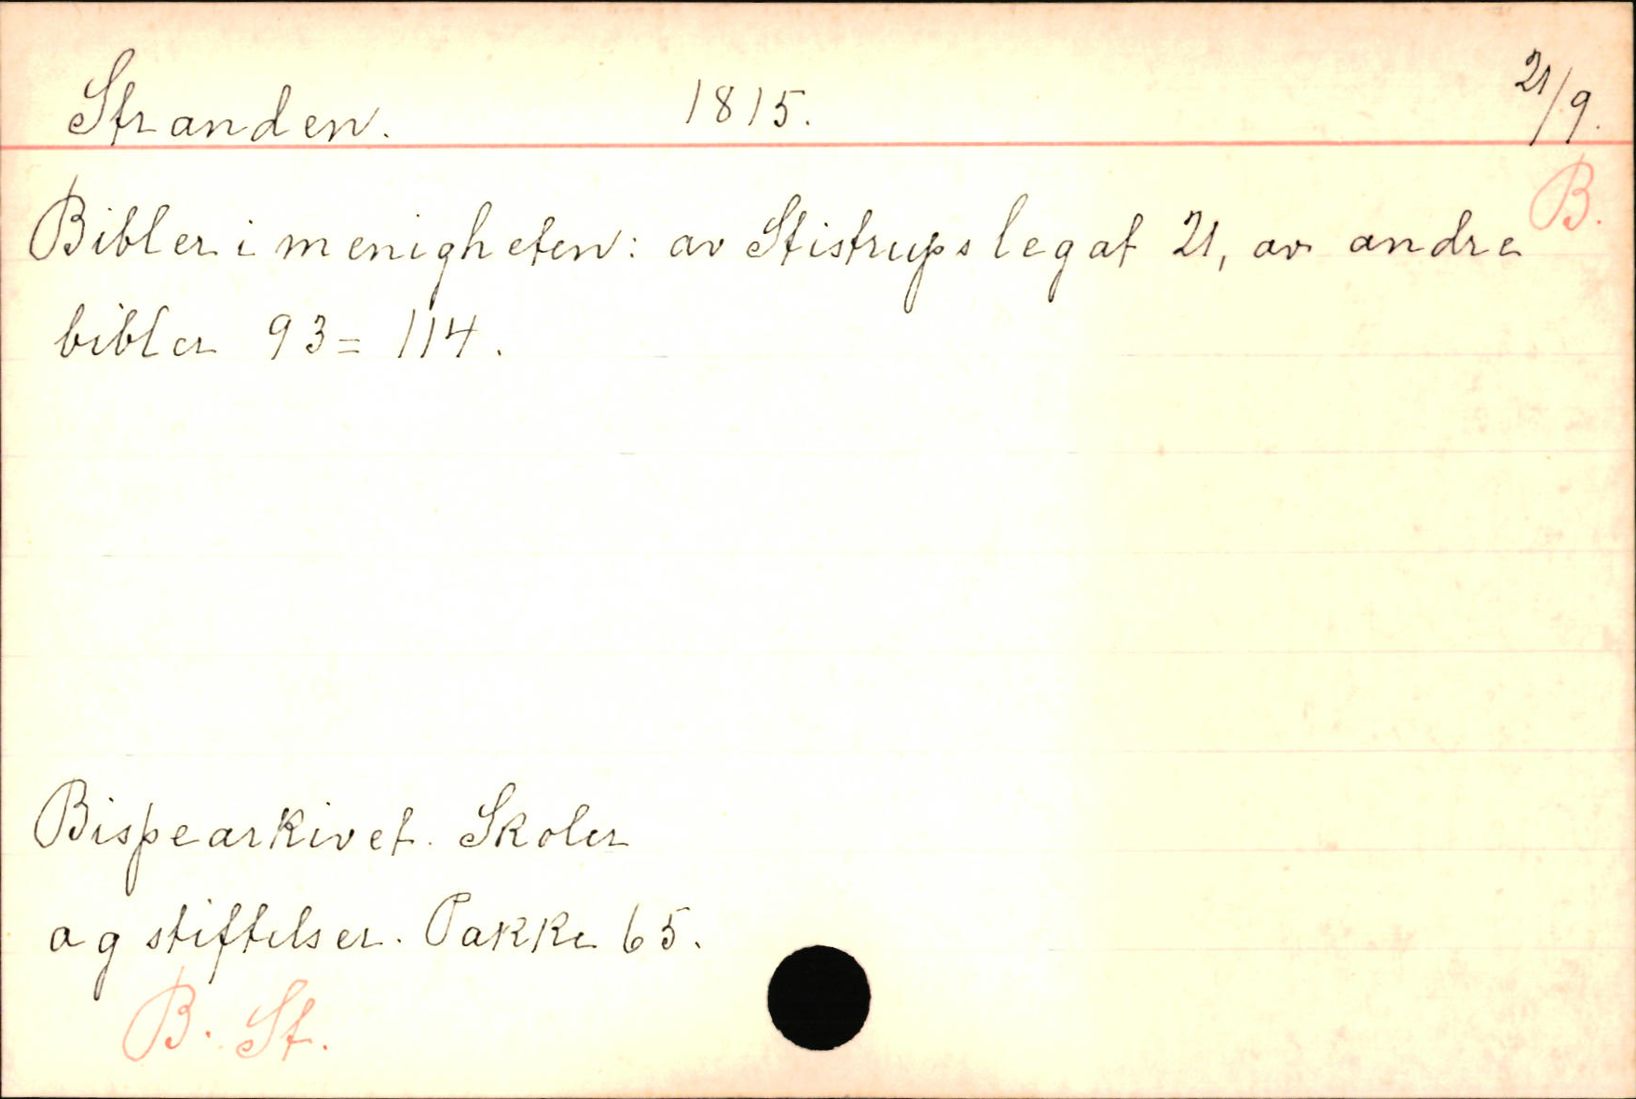 Stranden. 1815. 21/9.
B.
Bibler i menigheten: av Stistrups legat 21, av andre
bibler 93 = 114.
Bispearkivet. Skoler
og stiftelser. Pakke 65.
B. St.